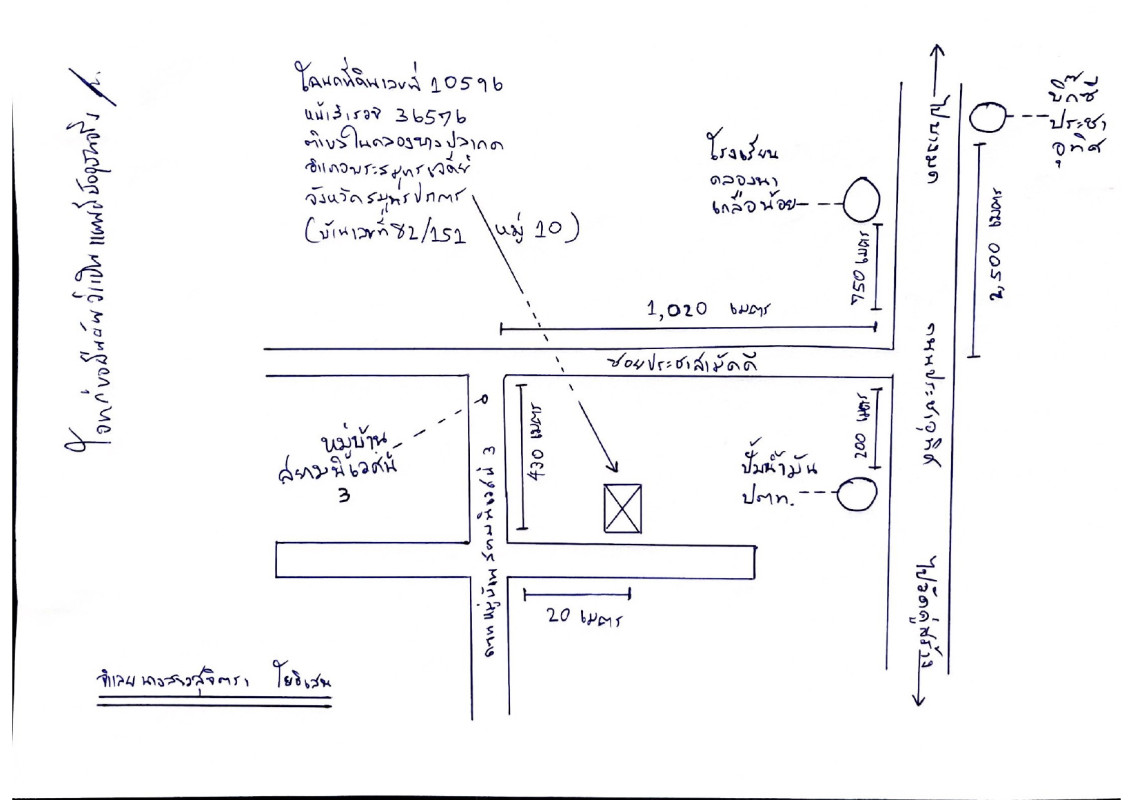 โฉนดที่ดินเลขที่ 10596
หน้าสำรวจ 36576
ตำบลในคลองบางปลากด
อำเภอพระสมุทรเจดีย์
จังหวัดสมุทรปราการ
(บ้านเลขที่ 82/151 หมู่ 10)
โจทก์ขอยืนยันว่าเป็นแผนที่ถูกต้องจริง
ไปบางมด
บิ๊กซี
ประชา
อุทิศ
โรงเรียน
คลองนา
เกลือน้อย
750 เมตร
2,500 เมตร
1,020 เมตร
ซอยประชาสามัคคี
ถนนประชาอุทิศ
หมู่บ้าน
สยามนิเวศน์
3
430 เมตร
200 เมตร
ปั๊มน้ำมัน
ปตท.
ถนนหมู่บ้านสยามนิเวศน์ 3
20 เมตร
ไปวัดคู่สร้าง
จำเลย นางสาวสุจิตรา